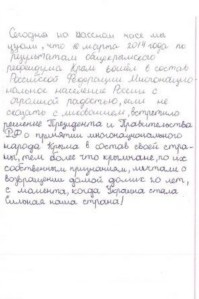 Сегодня на классном часе мы
узнали, что 18 марта 2014 года по
результатам общекрымского
референдума Крым вошёл в состав
Российской Федерации. Многонацио-
нальное население России с
огромной радостью, если не
сказать с ликованием, встретило
решение Президента и Правительства
РФ о принятии многонационального
народа Крыма в состав своей стра-
ны, тем более что крымчане, по их
собственным признаниям, мечтали о
возвращении домой долгих 20 лет,
с момента, когда Украина стала
Сильная наша страна!